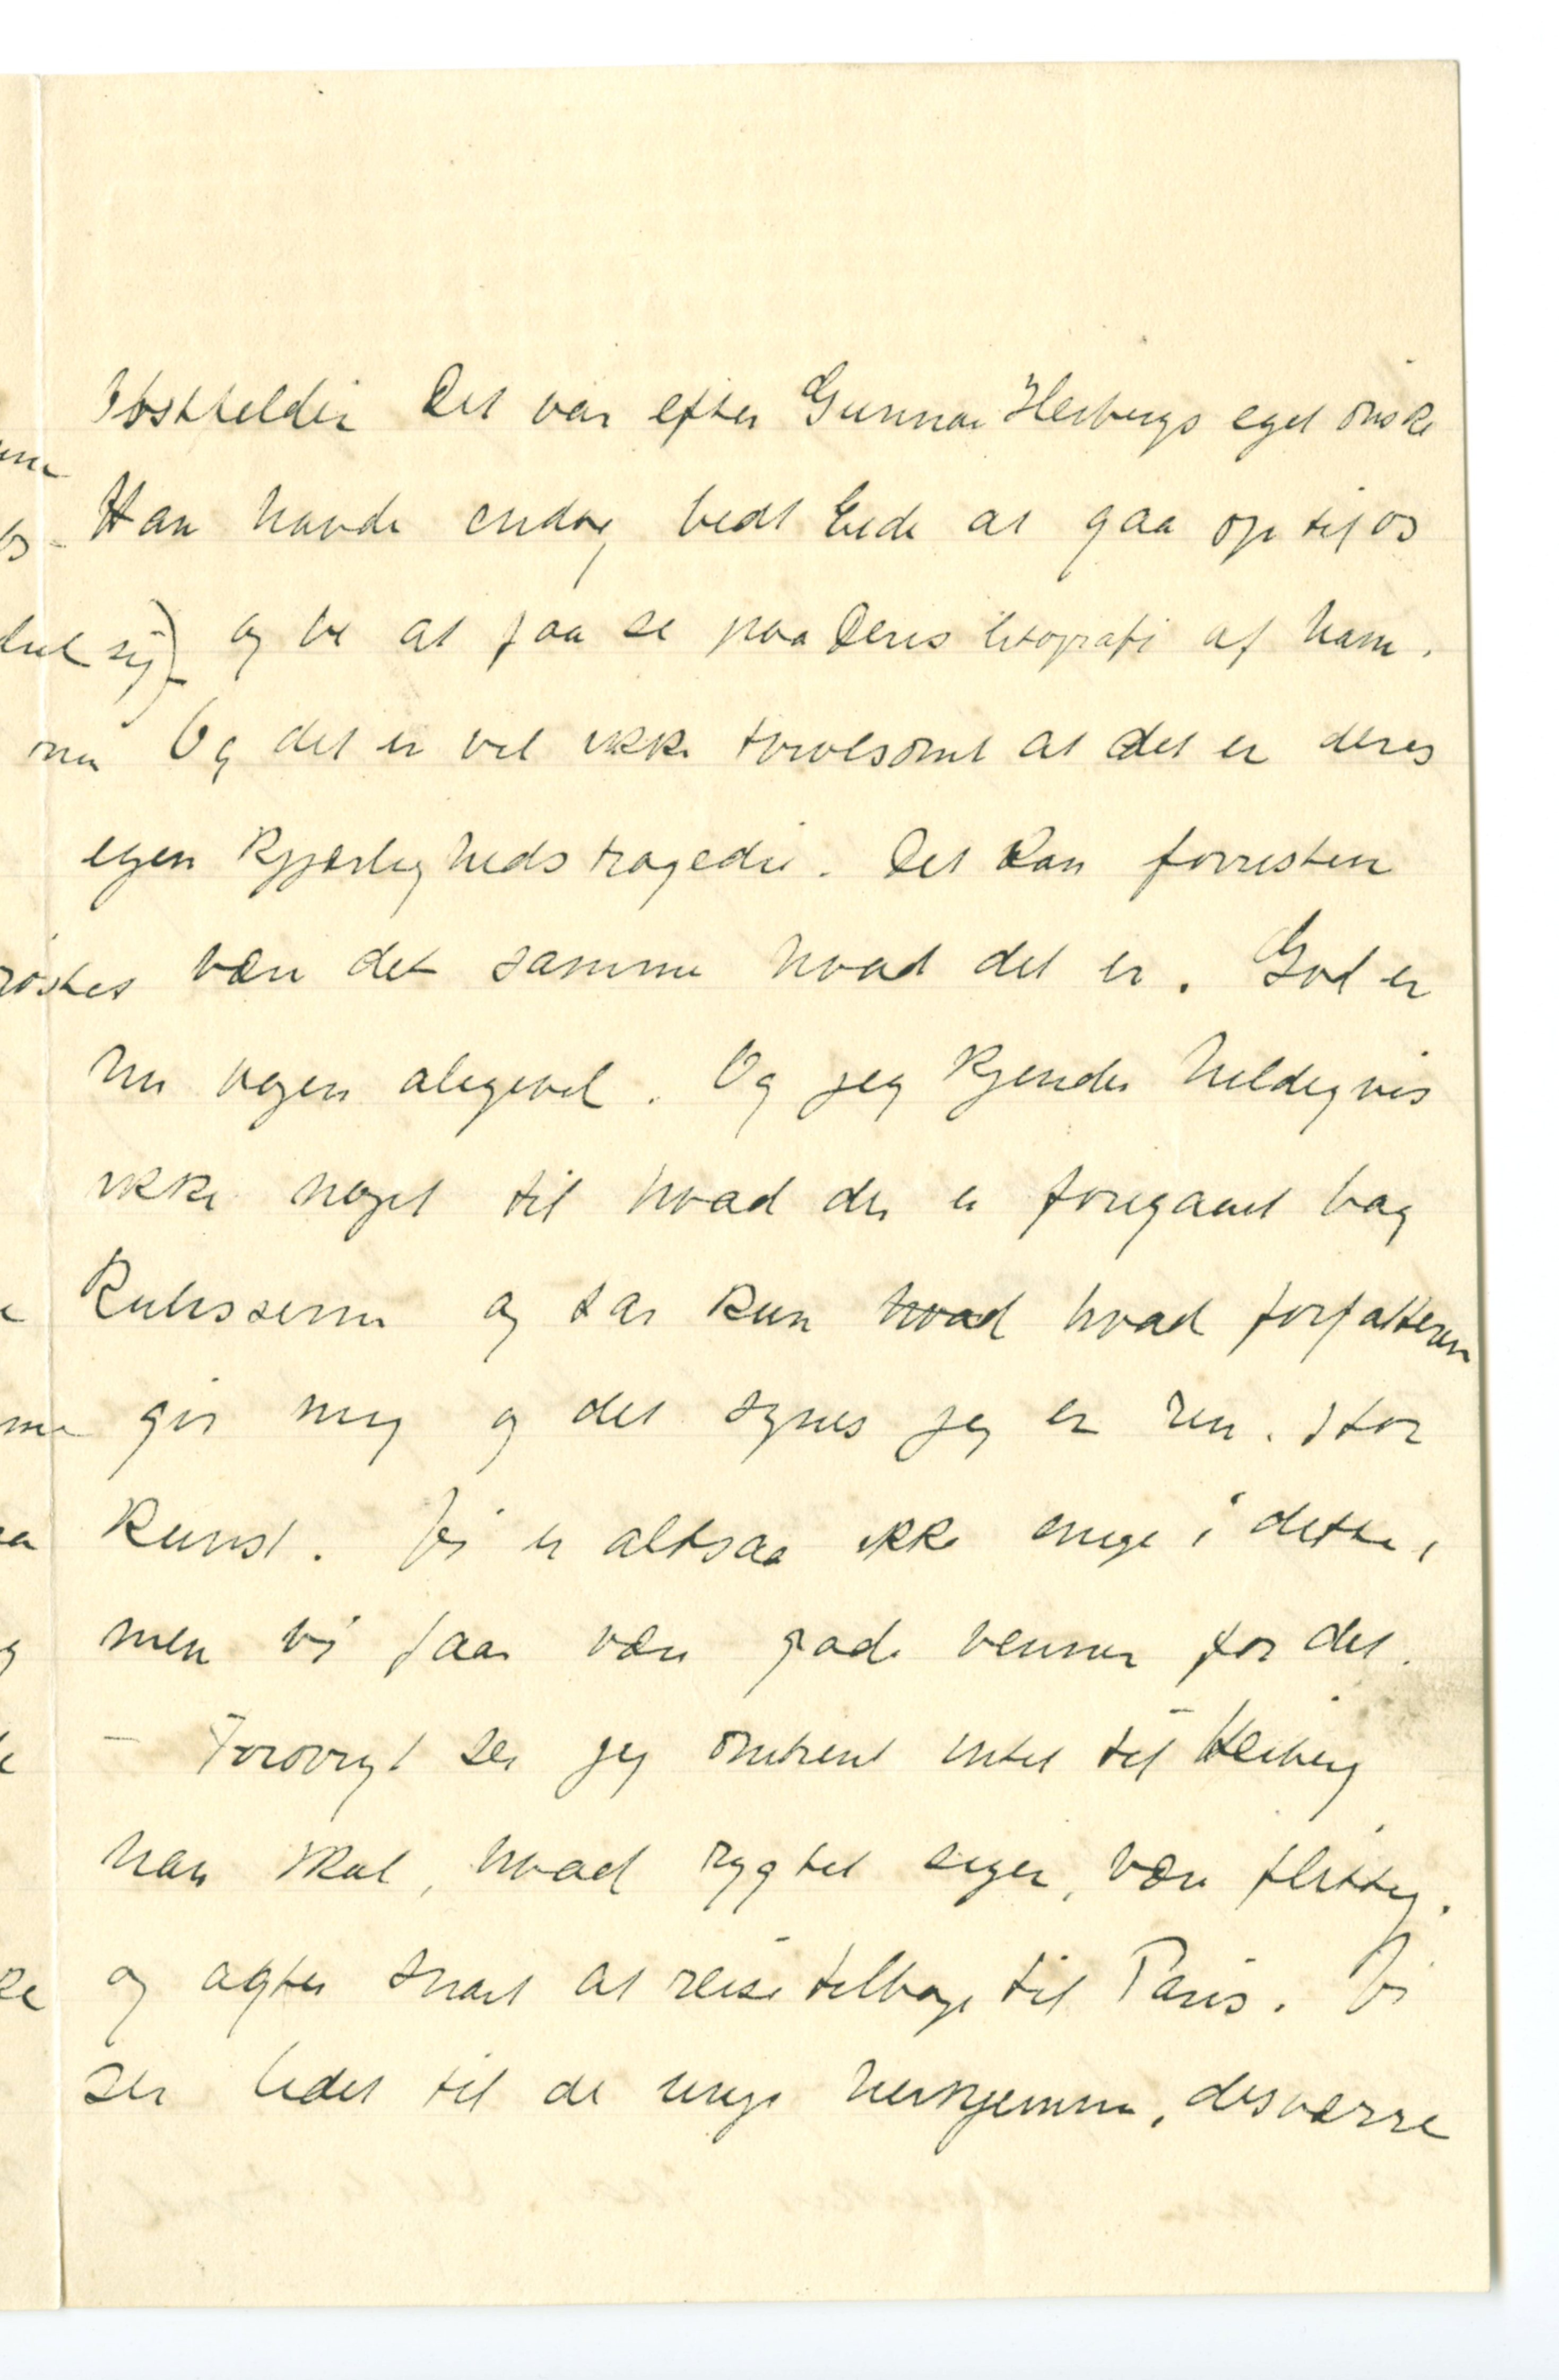 Obstfelder Det var efter Gunnar Heibergs eget ønske
Han havde endog bedt Eide at gaa op til os
og be at faa se paa Deres litografi af ham.
Og det er vel ikke tvivlsomt at det er deres
egen kjærlighedstragedie. Det kan forresten
være det samme hvad det er. God er
nu bogen aligevel. Og jeg kjender heldigvis
ikke noget til hvad der er foregaaet bag
Kulisserne og tar kun hvad hvad forfatteren
gir mig og det synes jeg er ren. stor
kunst. Vi er altsaa ikke enige i dette,
men vi faar være gode venner for det.
– Forøvrigt ser jeg omtrent intet til Heiberg
han skal, hvad rygtet siger, være flittig.
og agter snart at reise tilbage til Paris. Vi
ser lidet til de unge herhjemme, desværre